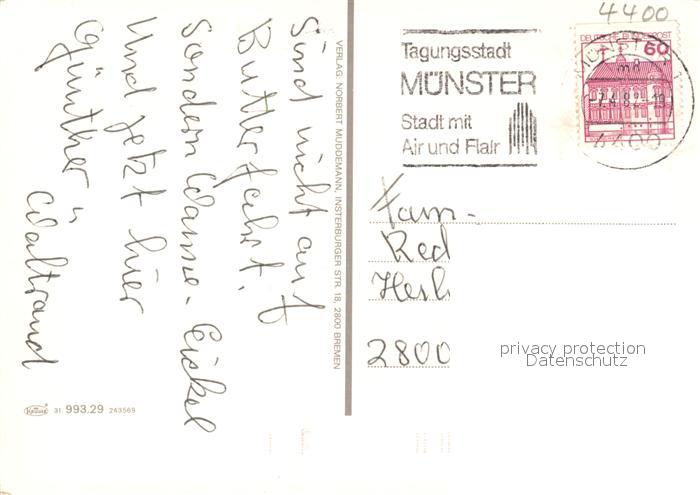 Sind nicht auf
Butterfahrt,
sondern Wanne-Eickel
Und jetzt hier
Günther u.
Waltraud
VERLAG: NORBERT MUDDEMANN, INSTERBURGER STR. 18, 2800 BREMEN
31. 993.29 243569
4400
Tagungsstadt
MÜNSTER
Stadt mit
Air und Flair
DEUTSCHE BUNDESPOST
60
4400
Fam.
Red
2800
privacy protection
Datenschutz